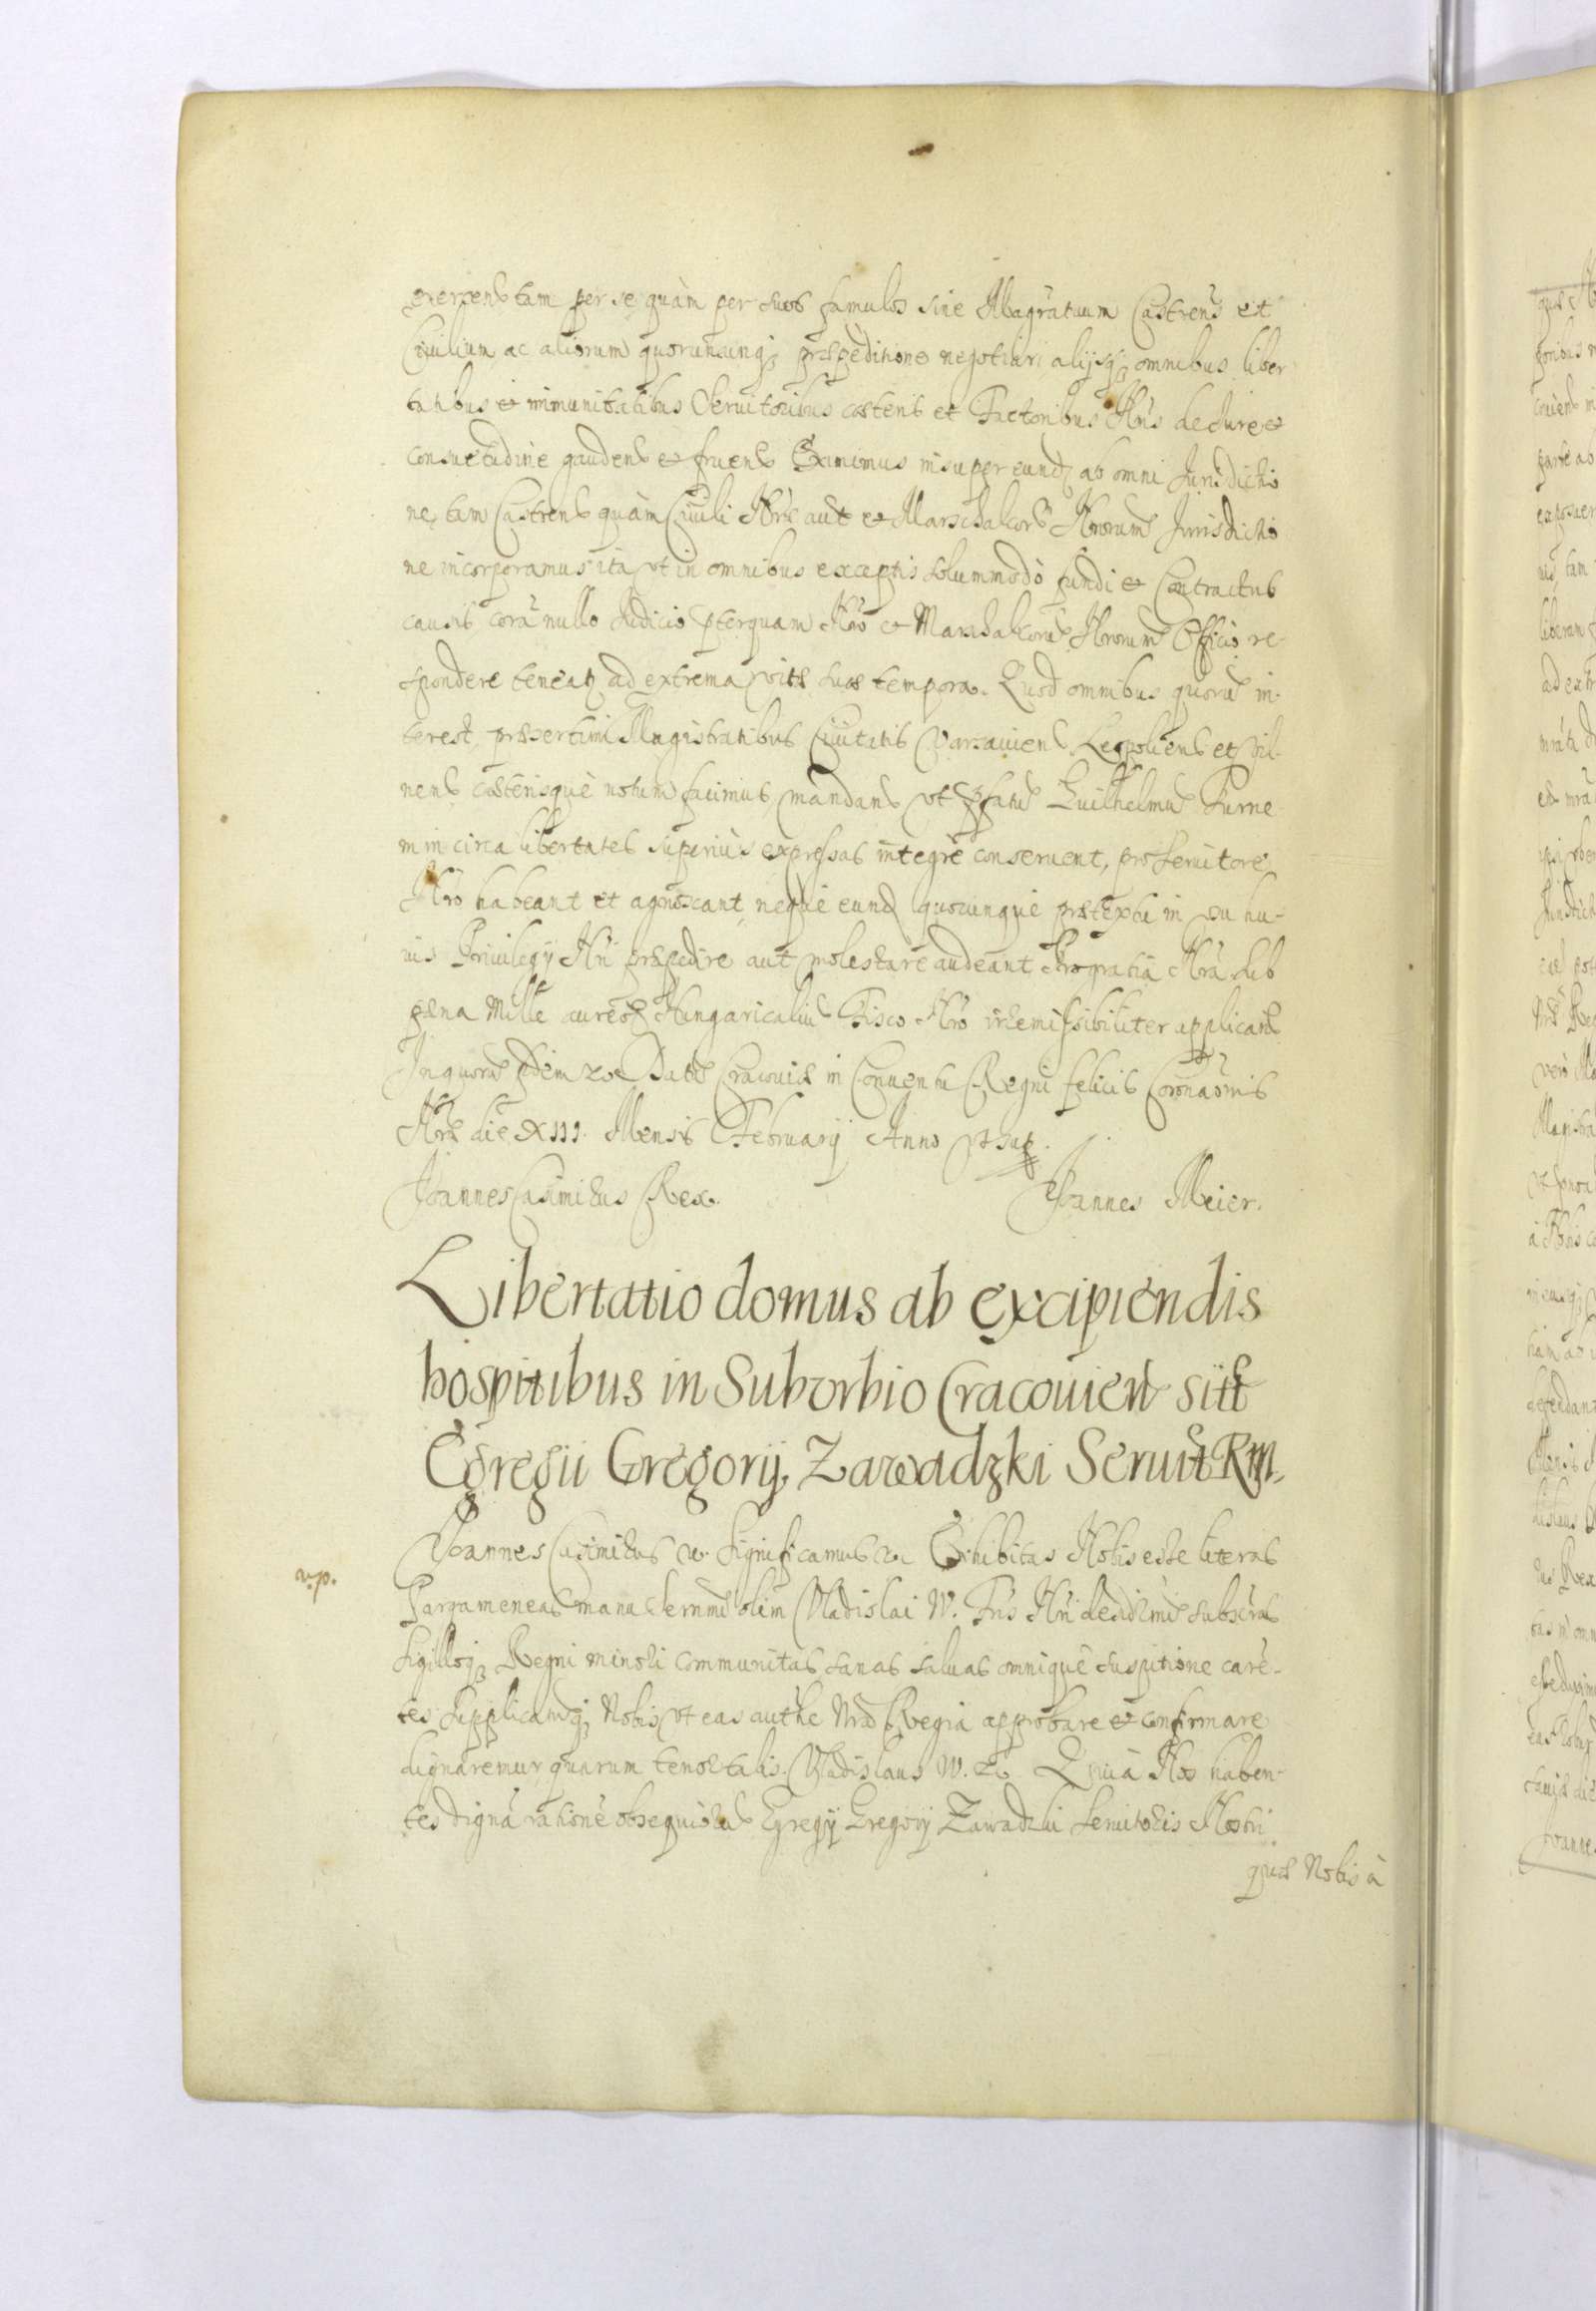 exercens tam per se quàm per suos famulos sine Magratuum Castrens et
Ciuilium ac aliorum quorumcunq; præpeditione negotiari alijsq; omnibus liber
tatibus et immunitatibus Seruitoribus cæteris et Factoribus Nris de Jure et
consuetudine gaudens et fruens Eximimus insuper eund ab omni Jurisdictio
ne, tam Castrens quàm Ciuili Nræ aut et Marschalcorū Nrorum Jurisdictio
ne incorporamus ità vt in omnibus exceptis solummodò fundi et Contractus
causis corā nullo Judicio pterquam Nro et Marschalcorū Nrorum Officio re-
spondere teneatr ad extrema vitæ suæ tempora. Quod omnibus quorū in-
terest, præsertim Magistratibus Ciuitatis Varsauiens Leopoliens et Vil-
nens cæterisque notum facimus, mandans vt præfatū Guilhelmū Furne
m in circa libertates superiùs expressas integrè conseruent, pro seruitore
Nro habeant et agnoscant, neque eund quocunque prætextu in vsu hu-
ius Priuilegij Nri præpedire aut molestare audeant Pro gratiā Nrā sub
pæna Mille aureor Hungaricaliū Fisco Nro irremissibiliter applicand
In quorū fidem &c Datū Cracouiæ in Conuentu Regni felicis Coronaōnis
Nræ die XIII. Mensis February Anno vt sup.
Joannes Casimirus Rex. Joannes Meier.
Libertatio domus ab excipiendis
hospitibus in Suburbio Cracouien sitæ
Egregii Gregorij Zawadzki Seruit RM.
Joannes Casimirus &c. Significamus &c Exhibitas Nobis esse literas
v.p.
Pargameneas manu Serenmi olim Vladislai IV. Fris Nri desidmi subscras
Sigilloq; Regni minori communitas, sanas saluas omnique suspitione carē-
tes Supplicatumq; Nobis vt eas authe Nrā Regia approbare et confirmare
dignaremur quarum tenor talis. Vladislaus IV. &c Quia Nos haben-
tes dignā rationē obsequiorū Egregij Gregorij Zawadzki seruitoris Nostri
quæ Nobis à